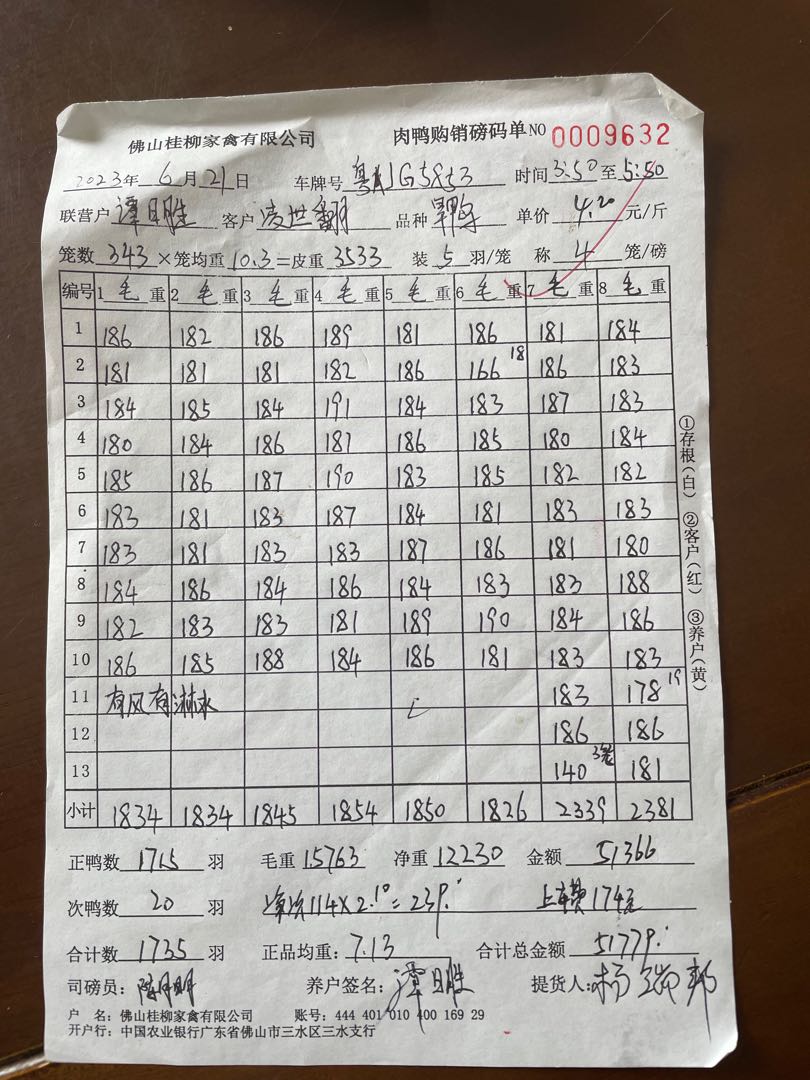 佛山桂柳家禽有限公司 肉鸭购销磅码单 NO 0009632
2023年 6月21日 车牌号 粤 JG5853 时间 3:50 至 5:50
联营户 谭日胜 客户 凌世翻 品种 旱鸭 单价 4.20 元/斤
笼数 343 ×笼均重 10.3 =皮重 3533 装 5 羽/笼 称 4 笼/磅
编号 1 毛重 2 毛重 3 毛重 4 毛重 5 毛重 6 毛重 7 毛重 8 毛重
1 186 182 186 189 181 186 181 184
2 181 181 181 182 186 166 18 186 183
3 184 185 184 191 184 183 187 183
4 180 184 186 181 186 185 180 184
5 185 186 187 190 183 185 182 182
6 183 181 183 187 184 181 183 183
7 183 181 183 183 187 186 181 180
8 184 186 184 186 184 183 183 188
9 182 183 183 181 189 190 184 186
10 186 185 188 184 186 181 183 183
11 有风有淋水 183 178 19
12 186 186
13 140 3笼 181
小计 1834 1834 1845 1854 1850 1826 2339 2381
正鸭数 1715 羽 毛重 15763 净重 12230 金额 51366
次鸭数 20 羽 114×2.10=239. 上车费174元
合计数 1735 羽 正品均重: 7.13 合计总金额 51779.
司磅员: 养户签名: 谭日胜 提货人: 杨 邦
户 名: 佛山桂柳家禽有限公司 账号: 444 401 010 400 169 29
开户行: 中国农业银行广东省佛山市三水区三水支行
①存根(白) ②客户(红) ③养户(黄)